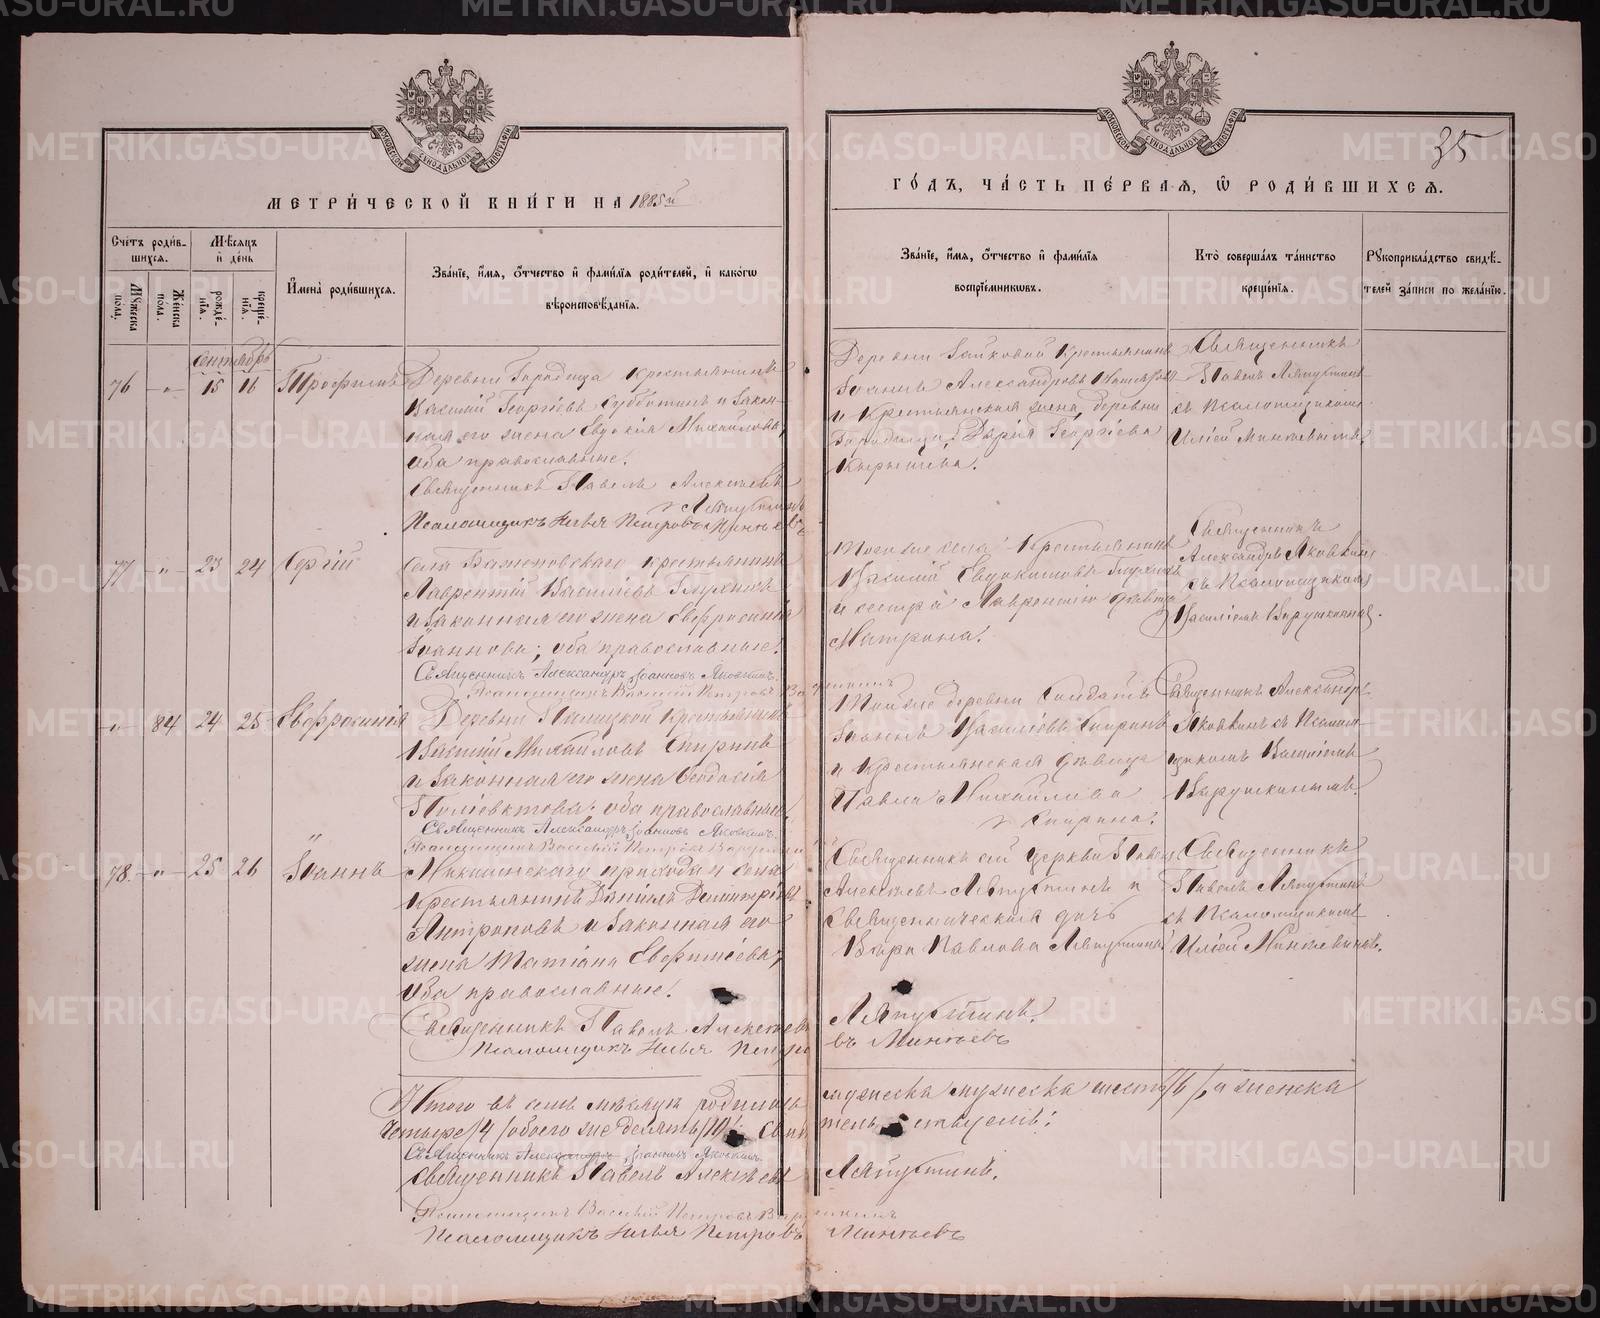 МЕТРИ́ЧЕСКОЙ КНИ́ГИ НА 1885й
Сче́тъ роди́в-
шихся.
Мѣ́сяцъ
и҆ де́нь
Мꙋ́жеска
пола̀.
Же́нска
пола̀.
рожде́-
нїѧ.
креще́-
нїѧ.
И҆мена̀ роди́вшихсѧ.
Зва́нїе, и҆́мѧ, ѻ҆́тчество и҆ фами́лїѧ роди́телей, и҆ како́гѡ
вѣроисповѣ́данїѧ.
Сентябрь
76 " 15 16 Трофимъ
Деревни Городища Крестьянинъ
Василій Георгіевъ Субботинъ и закон-
ная его жена Евдокія Михайлова,
оба православные.
Священникъ Павелъ Алексѣевъ
Ляпустинъ
Псаломщикъ Илья Петровъ
77 " 23 24 Сергій
Села Баженовскаго Крестьянинъ
Лаврентій Василіевъ Глухихъ
и законная его жена Евфросинія
Іоаннова; оба православные.
Священникъ Александръ Іоанновъ Яковкинъ.
Псаломщикъ Василій Петровъ
" 84 24 25 Евфросинія
Деревни Палицкой Крестьянинъ
Василій Михайловъ Спиринъ
и законная его жена Ѳеодосія
Поліевктова; оба православные.
Священникъ Александръ Іоанновъ Яковкинъ.
Псаломщикъ Василій Петровъ
78. " 25 26 Іоаннъ
прихода и села
Крестьянинъ Даніилъ Димитріевъ
Антроповъ и законная его
жена Татіана Евфиміева,
оба православные.
Священникъ Павелъ Алексѣевъ
Псаломщикъ Илья Петро
Итого въ семъ мѣсяцѣ родилось
четыре /4/ обоего же десять /10/.
Священникъ Александръ Іоанновъ Яковкинъ.
Священникъ Павелъ Алексѣевъ
Псаломщикъ Василій Петровъ
Псаломщикъ Илья Петровъ
35
ГО́ДЪ, ЧА́СТЬ ПЕ́РВАЯ, Ѡ҆ РОДИ́ВШИХСЯ.
Зва́нїе, и҆́мѧ, ѻ҆́тчество и҆ фами́лїѧ
воспрїе́мникѡвъ.
Кто̀ соверша́лъ та́инство
креще́нїѧ.
Рꙋкоприкла́дство свидѣ́-
телей за́писи по жела́нїю.
Деревни Зайковой Крестьянинъ
Іоаннъ Александровъ
и Крестьянская жена, деревни
Городища, Дарія Георгіева
Священникъ
Павелъ Ляпустинъ
съ Псаломщикомъ
Иліею
Того же села Крестьянинъ
Василій Евдокимовъ Глухихъ
и сестра Лаврентію дѣвица
Матрона.
Священникъ
Александръ Яковкинъ
съ Псаломщикомъ
Василіемъ
Той же деревни Солдатъ
Іоаннъ Василіевъ Спиринъ
и Крестьянская дѣвица
Павла Михайлова
Спирина.
Священникъ Александръ
Яковкинъ съ Псалом-
щикомъ Василіемъ
Священникъ сей церкви Павелъ
Алексѣевъ Ляпустинъ и
Священническая дочь
Вѣра Павлова Ляпустина
Священникъ
Павелъ Ляпустинъ
съ Псаломщикомъ
Иліею
Ляпустинъ.
мужеска шесть /6/, а женска
Ляпустинъ.